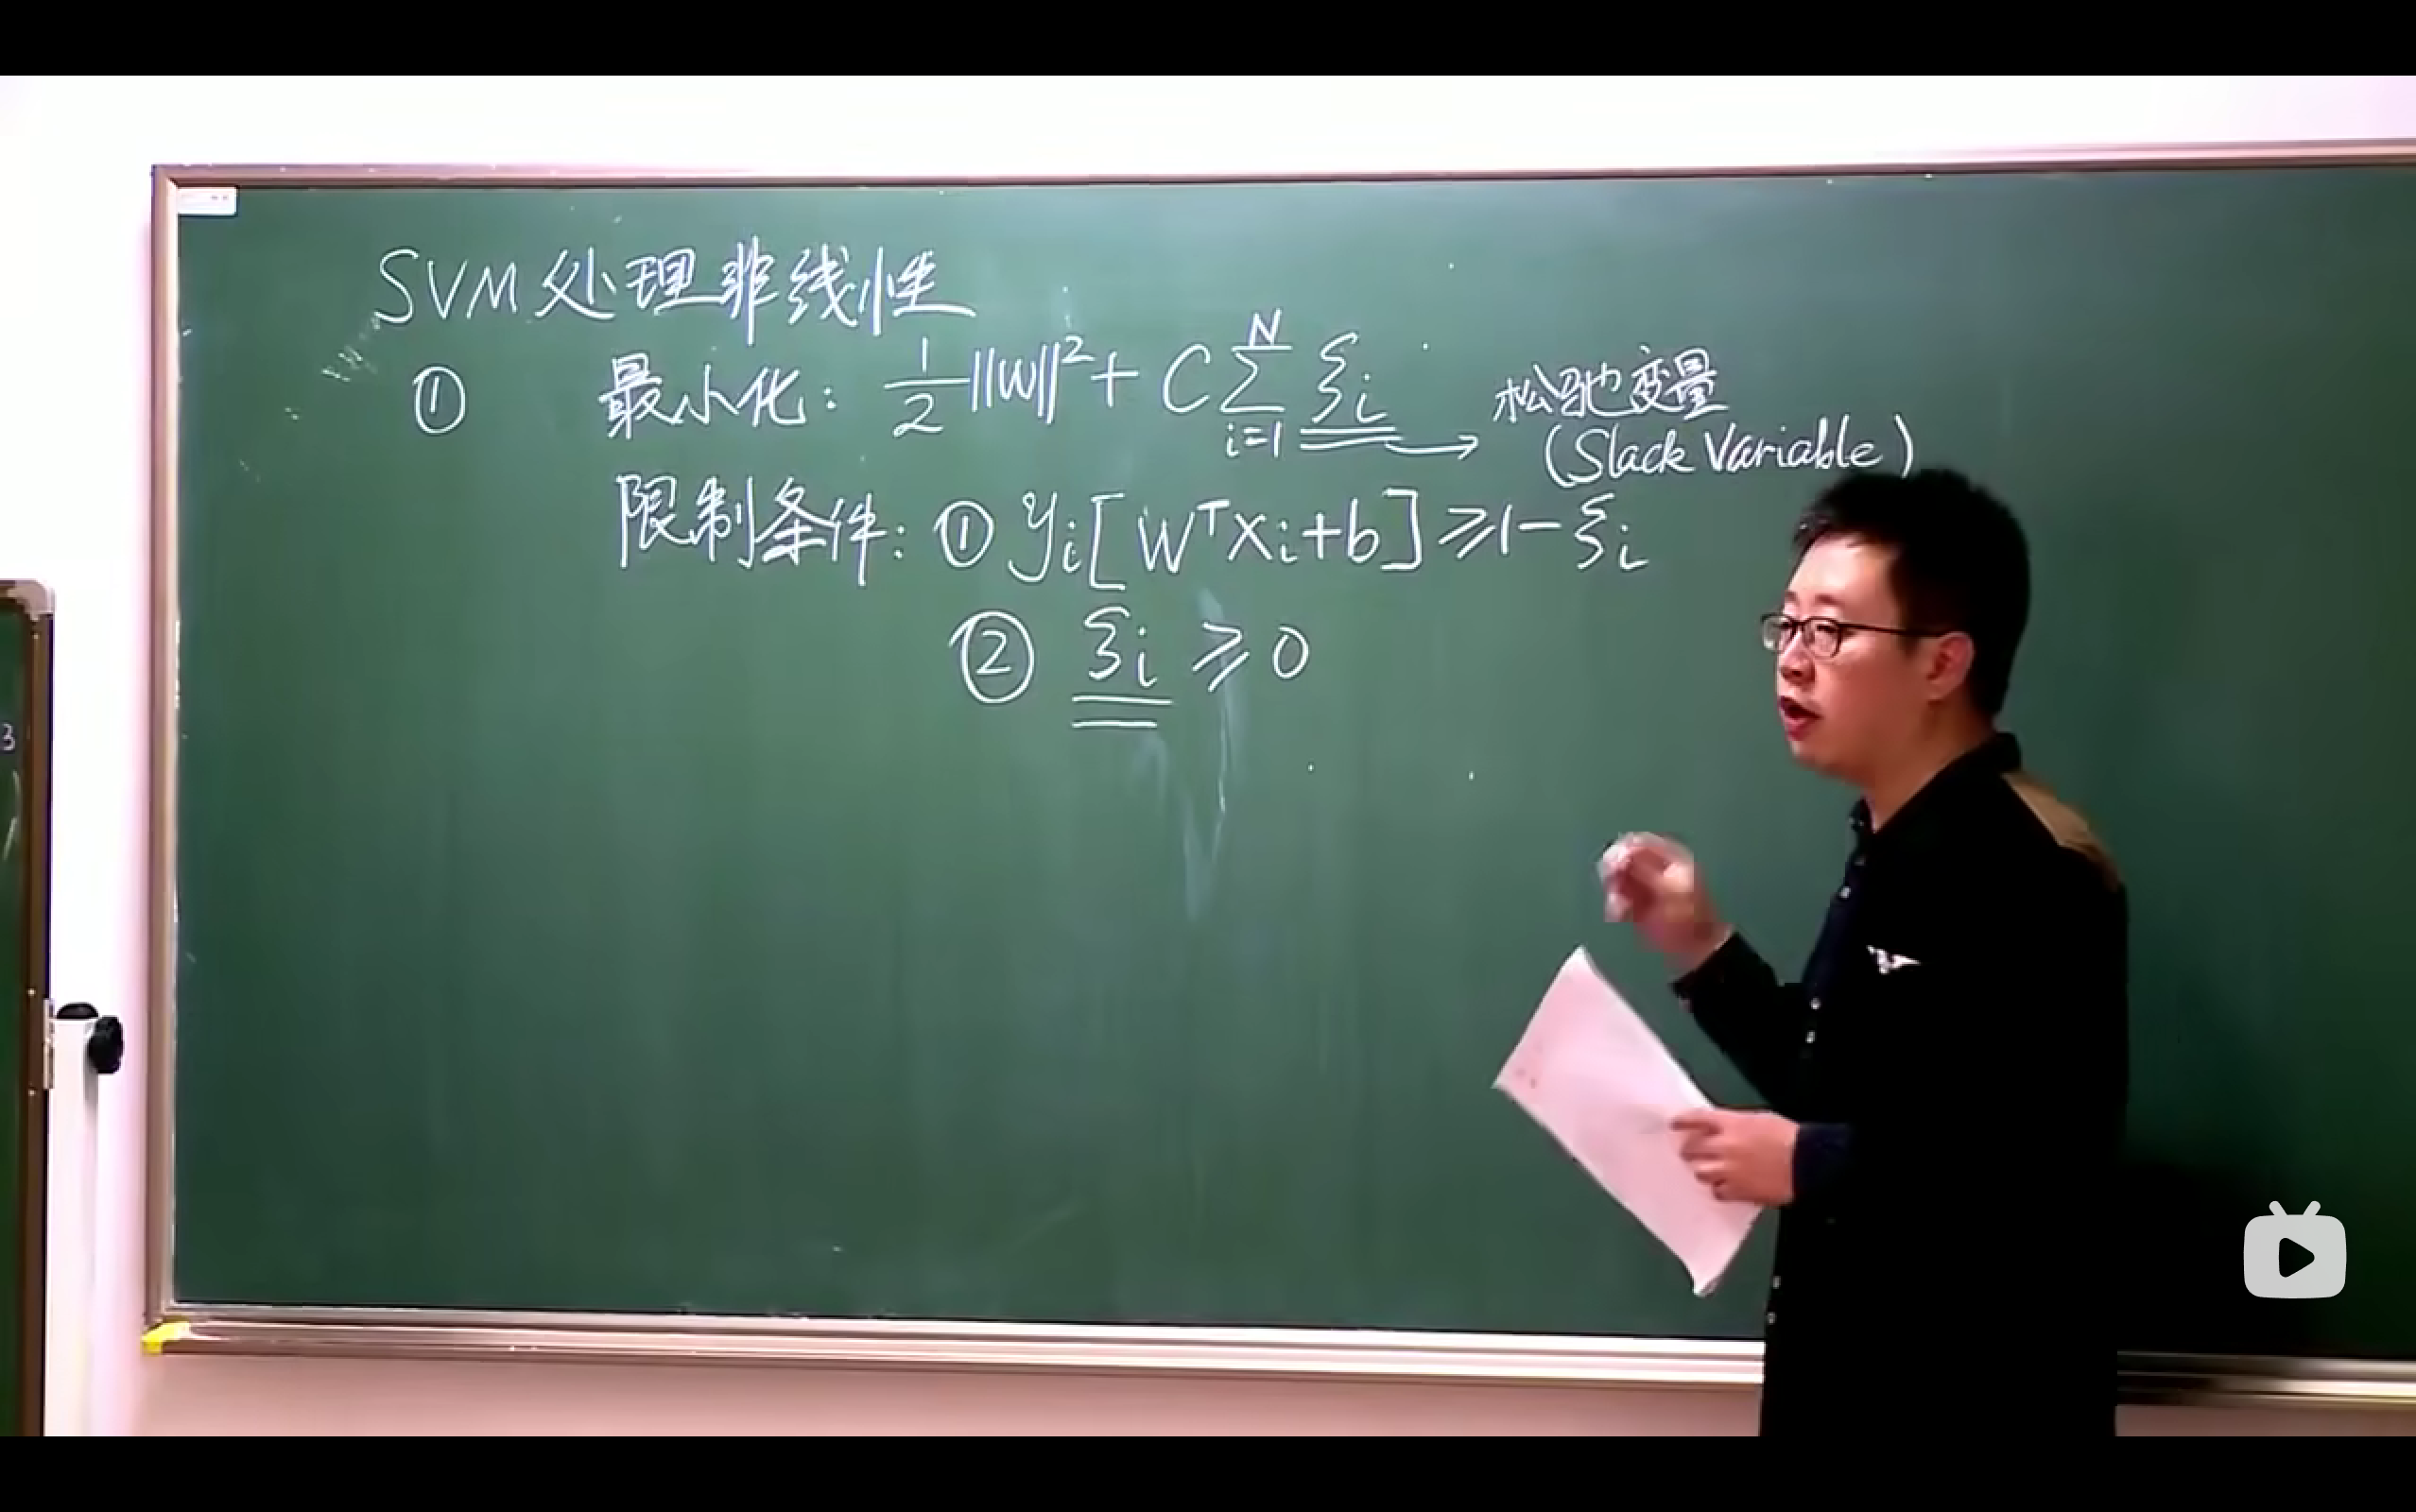 SVM处理非线性
① 最小化: 1/2 ||W||² + C∑_{i=1}^{N} ξi
松驰变量
(Slack Variable)
限制条件: ① yi[WᵀXi+b]≥1-ξi
② ξi ≥ 0
3